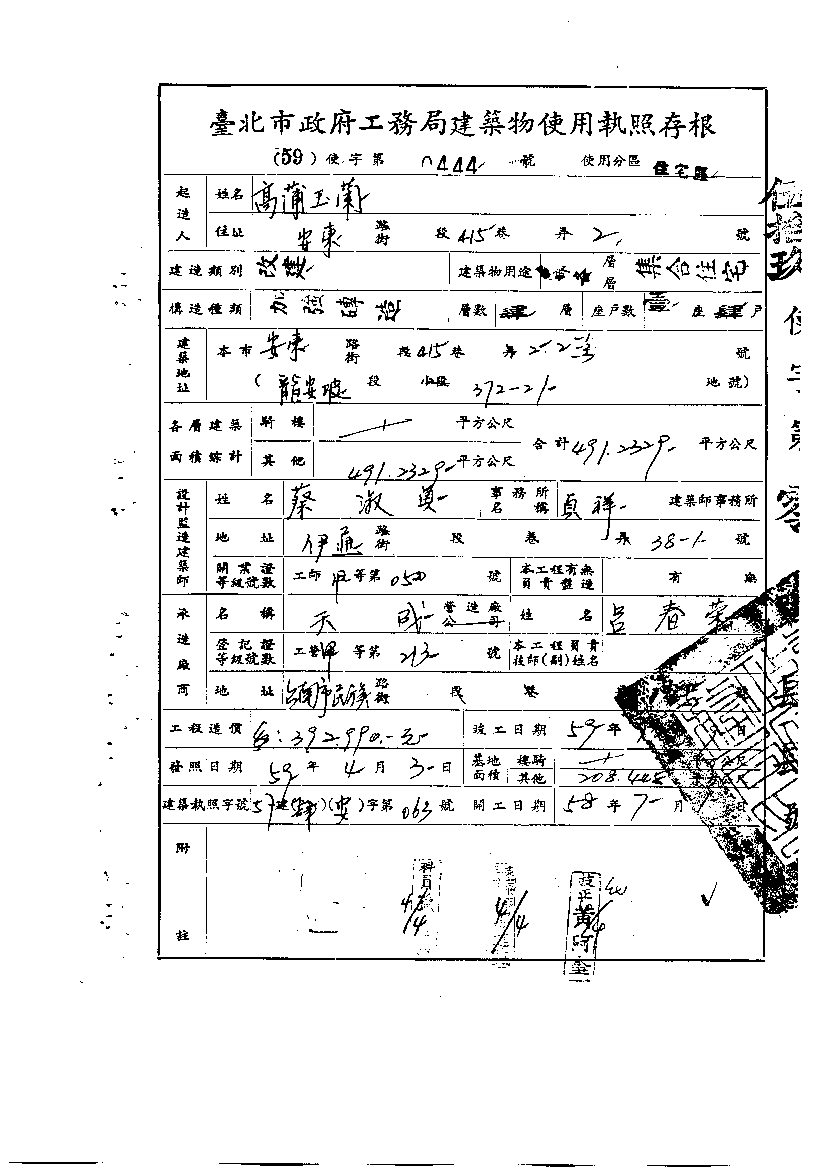 臺北市政府工務局建築物使用執照存根
(59)使字第 0444 號 使用分區 住宅區
起造人 姓名 高蒲玉蘭
住址 安東 路街 段 415 巷 弄 2 號
建造類別 改建 建築物用途 層層 集合住宅
構造種類 加強磚造 層數 肆 層 座戶數 壹 座 肆 戶
建築地址 本市 安東 路街 段 415 巷 弄 號
(龍安坡 段 小段 372-21 地號)
各層建築面積綜計 騎樓 平方公尺 合計 491.2329 平方公尺
其他 491.2329 平方公尺
設計監造建築師 姓名 蔡淑貞 事務所名稱 貞祥 建築師事務所
地址 伊通 路街 段 巷 弄 38-1 號
開業證等級號數 工師甲等第 號 本工程有無負責監造 有 無
承造廠商 名稱 天成 營造廠公司 姓名 呂春榮
登記證等級號數 工營甲等第 213 號 本工程負責技師(副)姓名
地址 台南市民族 路街 段 巷
工程造價 392.990.-元 竣工日期 59 年
發照日期 59 年 4 月 3 日 基地面積 騎樓
其他 208.445
建築執照字號 57 建 (安)字第 063 號 開工日期 58 年 7 月
附註
科員
技正 黃阿金
伍拾玖使字第零